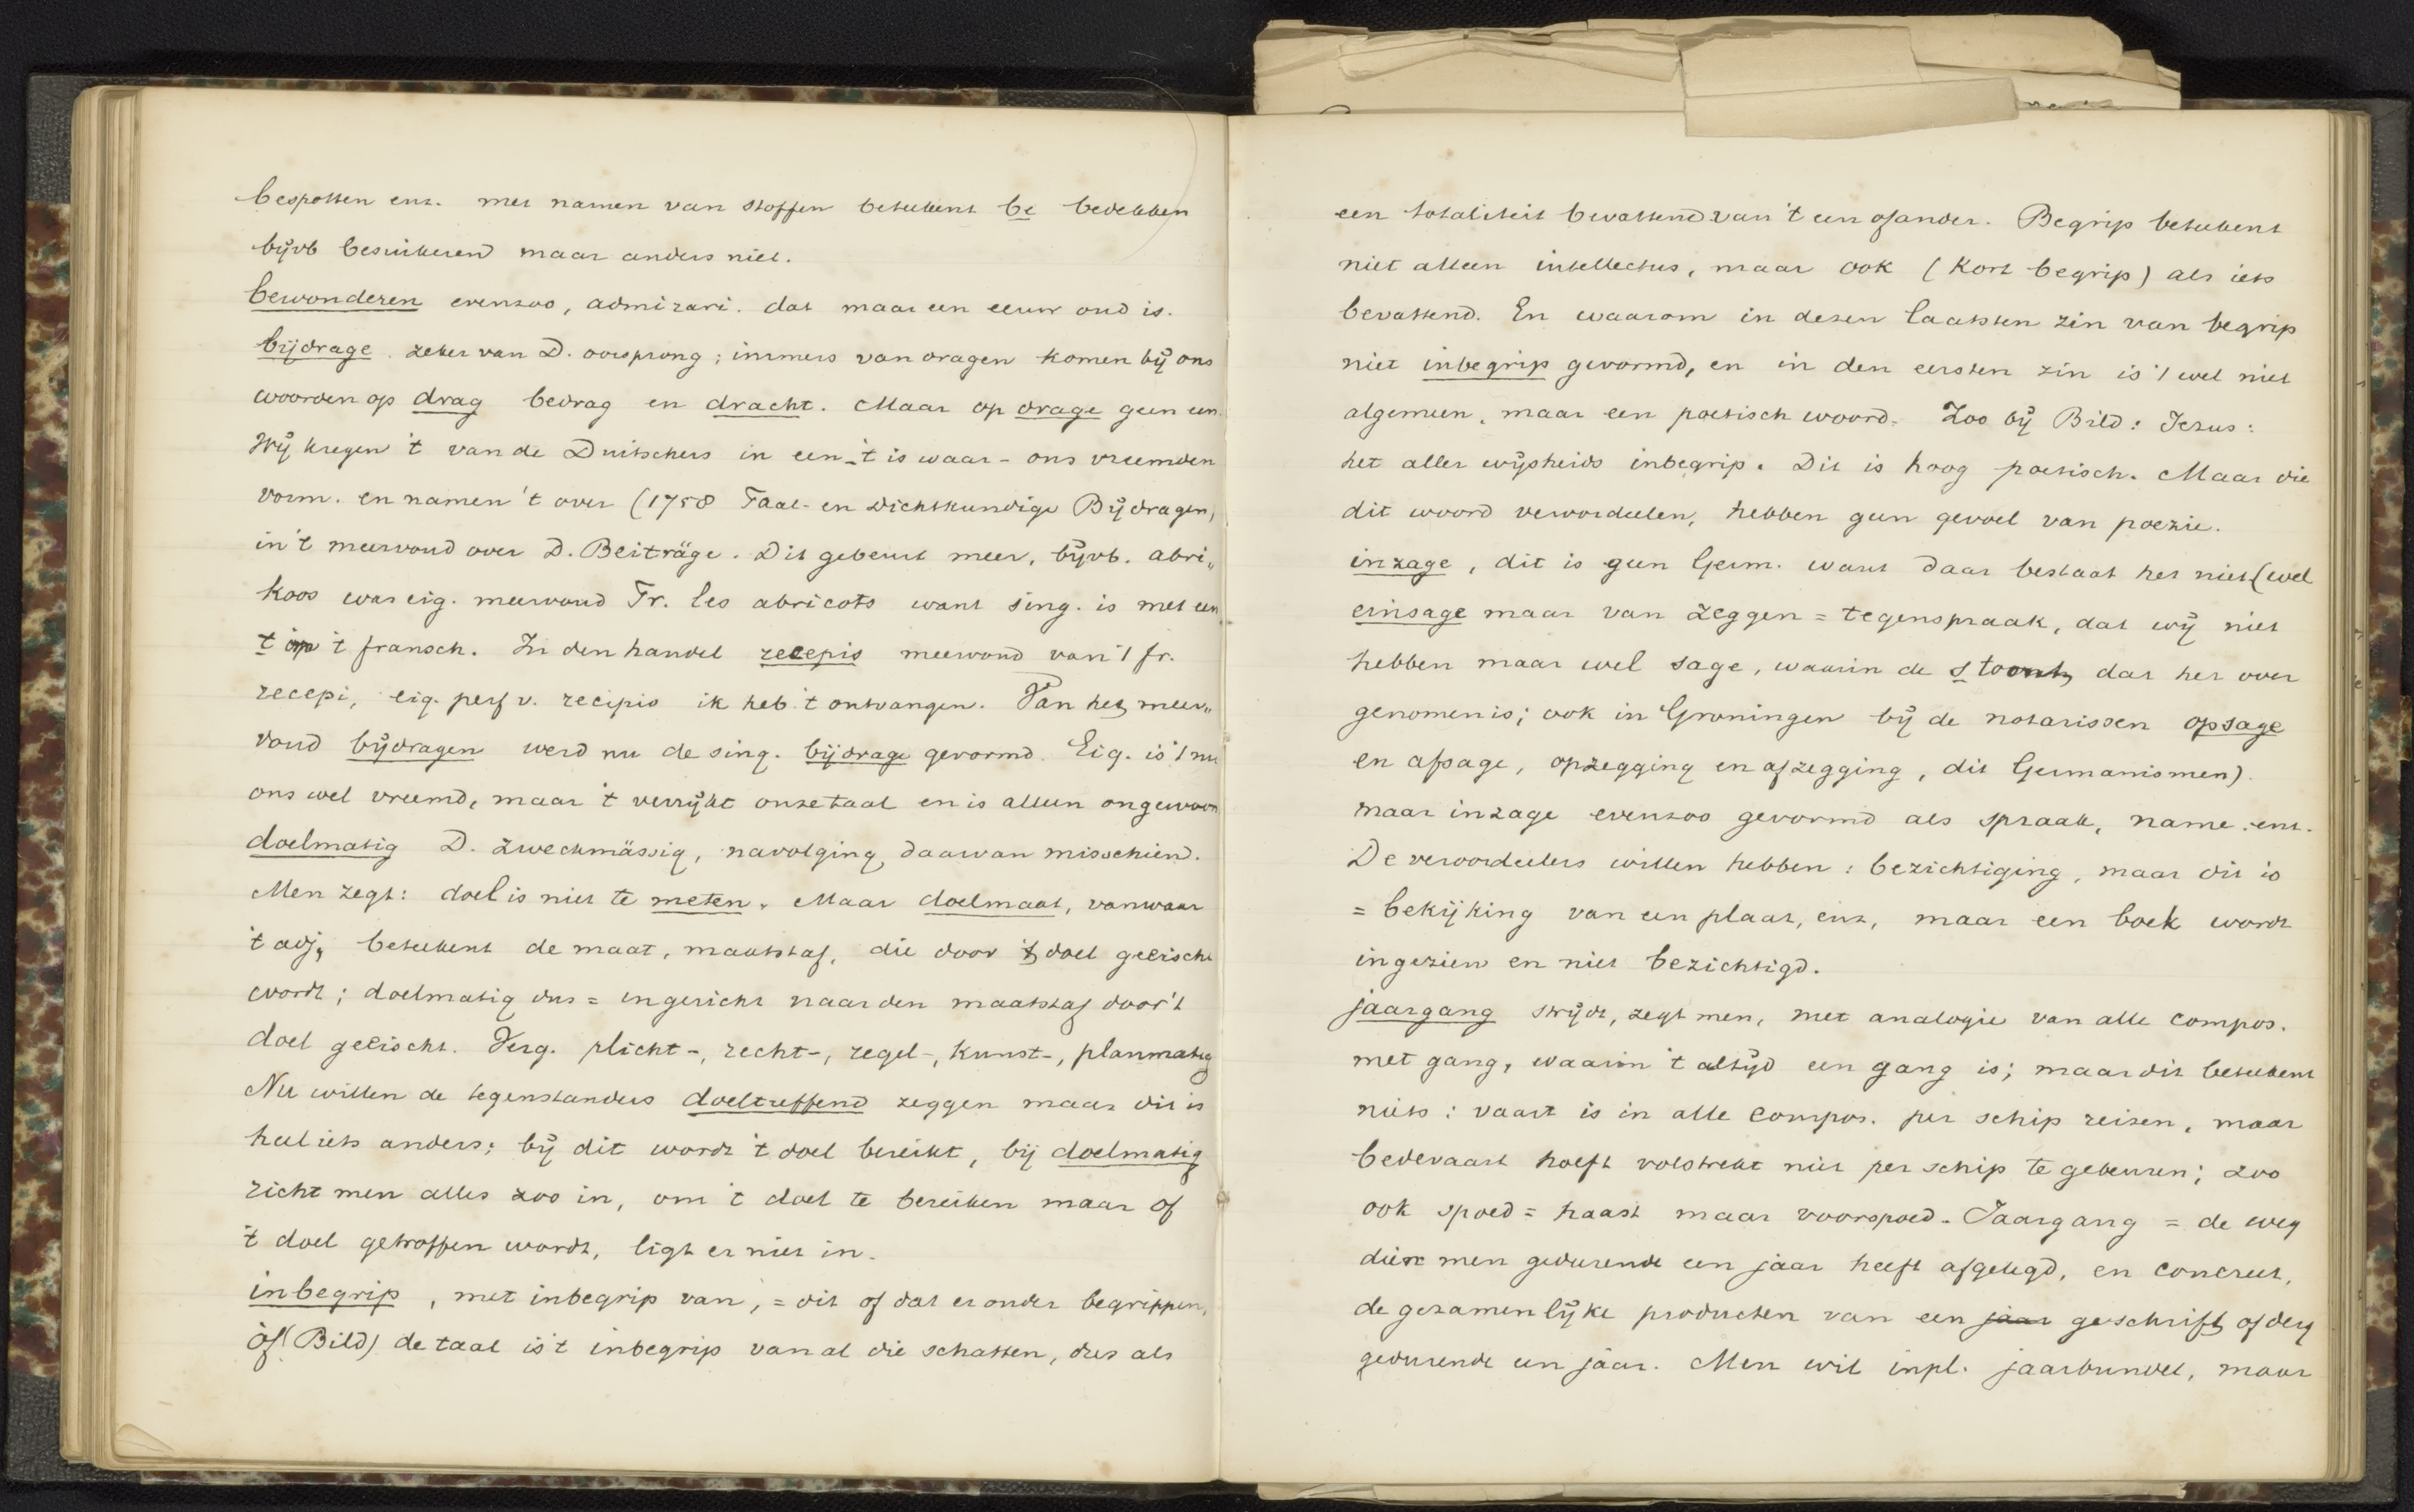 bespotten enz. met namen van stoffen beteekent be bedekken
bijvb besuikerend maar anders niet.
bewonderen evenzoo, admirari. dat maar een eeuw oud is.
bijdrage. zeker van D. oorsprong; immers van dragen komen bij ons
woorden op drag bedrag en dracht. Maar op drage geen een.
Wij kregen 't van de Duitschers in een - 't is waar - ons vreemden
vorm. en namen 't over (1758 Taal- en Dichtkundige Bijdragen,
in 't meervoud over D. Beiträge. Dit gebeurt meer, bijvb. abri„
koos was eig. meervoud Fr. les abricots want sing. is met een
t op 't fransch. In den handel recepis meervoud van 't fr.
recepi, eig. perf v. recipio ik heb 't ontvangen. Van het meer„
voud bijdragen werd nu de sing. bijdrage gevormd. Eig. is 't nu
ons wel vreemd, maar 't verrijkt onze taal en is alleen ongewoon
doelmatig D. zweckmässig, navolging daarvan misschien.
Men zegt: doel is niet te meten. Maar doelmaat, vanwaar
't adj, beteekent de maat, maatstaf, die door 't doel geëischt
wordt; doelmatig dus = ingericht naar den maatstaf door 't
doel geëischt. Verg. plicht-, recht-, regel-, kunst-, planmatig
Nu willen de tegenstanders doeltreffend zeggen maar dit is
heel iets anders; bij dit wordt 't doel bereikt, bij doelmatig
richt men alles zoo in, om 't doel te bereiken maar of
't doel getroffen wordt, ligt er niet in.
inbegrip, met inbegrip van, = dit of dat er onder begrippen,
òf (Bild) de taal is 't inbegrip van al die schatten, dus als
een totaliteit bevattend van 't een of ander. Begrip beteekent
niet alleen intellectus, maar ook (Kort begrip) als iets
bevattend. En waarom in dezen laatsten zin van begrip
niet inbegrip gevormd, en in den eersten zin is 't wel niet
algemeen, maar een poetisch woord. Zoo bij Bild: Jezus:
het aller wijsheids inbegrip. Dit is hoog poetisch. Maar die
dit woord veroordeelen, hebben geen gevoel van poezie.
inzage, dit is geen Germ. want daar bestaat het niet (wel
einsage maar van zeggen = tegenspraak, dat wij niet
hebben maar wel sage, waarin de s toont, dat het over
genomen is; ook in Groningen bij de notarissen opsage
en afsage, opzegging en afzegging, dit Germanismen).
maar inzage evenzoo gevormd als spraak, name. enz.
De veroordeelers willen hebben: bezichtiging, maar dit is
= bekijking van een plaat, enz, maar een boek wordt
ingezien en niet bezichtigd.
jaargang strijdt, zegt men, met analogie van alle compos.
met gang, waarin 't altijd een gang is; maar dit beteekent
niets: vaart is in alle compos. per schip reizen, maar
bedevaart hoeft volstrekt niet per schip te gebeuren; zoo
ook spoed = haast maar voorspoed. Jaargang = de weg
dien men gedurende een jaar heeft afgelegd, en concreet,
de gezamenlijke producten van een jaar geschrift of derg
gedurende een jaar. Men wil inpl. jaarbundel, maar